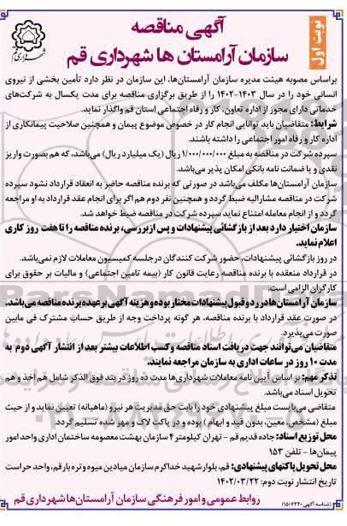 نوبت اول
آگهی مناقصه
سازمان آرامستان ها شهرداری قم
براساس مصوبه هیئت مدیره سازمان آرامستان‌ها، این سازمان در نظر دارد تأمین بخشی از نیروی
انسانی خود را در سال ۱۴۰۳-۱۴۰۲ را از طریق برگزاری مناقصه برای مدت یکسال به شرکت‌های
خدماتی دارای مجوز از اداره تعاون، کار و رفاه اجتماعی استان قم واگذار نماید.
شرایط: متقاضیان باید توانایی انجام کار در خصوص موضوع پیمان و همچنین صلاحیت پیمانکاری از
اداره کار و رفاه امور اجتماعی را داشته باشند.
سپرده شرکت در مناقصه به مبلغ ۱/۰۰۰/۰۰۰/۰۰۰ ریال (یک میلیارد ریال) می‌باشد، که هم بصورت واریز
نقدی و یا ضمانت نامه بانکی امکان پذیر می‌باشد.
سازمان آرامستان‌ها مکلف می‌باشد در صورتی که برنده مناقصه حاضر به انعقاد قرارداد نشود سپرده
شرکت در مناقصه مشارالیه ضبط گردد و همچنین نفر دوم هم اگر برای انجام عقد قرارداد به او مراجعه
گردد و از انجام معامله امتناع نماید سپرده شرکت در مناقصه ضبط خواهد شد.
سازمان اختیار دارد بعد از بازگشائی پیشنهادات و پس از بررسی، برنده مناقصه را تا هفت روز کاری
اعلام نماید.
در روز بازگشائی پیشنهادات، حضور شرکت کنندگان در جلسه کمیسیون معاملات لازم نمی‌باشد.
در قرارداد منعقده با برنده مناقصه رعایت قانون کار (بیمه تامین اجتماعی) و مالیات بر حقوق برای
کارگران الزامی است.
سازمان آرامستان‌ها در رد و قبول پیشنهادات مختار بوده و هزینه آگهی بر عهده برنده مناقصه می‌باشد.
در صورت عقد قرارداد با برنده مناقصه، هر گونه پرداخت وجه از طریق حساب مشترک فی مابین
صورت می‌پذیرد.
متقاضیان می‌توانند جهت دریافت اسناد مناقصه و کسب اطلاعات بیشتر بعد از انتشار آگهی دوم به
مدت ۱۰ روز در ساعات اداری به سازمان مراجعه نمایند.
تذکر مهم: بر اساس آیین نامه معاملات شهرداری‌ها مدت ده روز در بند فوق الذکر شامل هم أخذ و هم
تحویل اسناد می‌باشد.
متقاضی می‌بایست مبلغ پیشنهادی خود را بابت حق مدیریت هر نیرو (ماهیانه) تعیین نماید و از حیث
مبلغ (مشخص، معین، بدون قید و ابهام) بوده و در پاکت لاک و مهر شده تسلیم گردد.
محل توزیع اسناد: جاده قدیم قم - تهران کیلومتر ۴ سازمان بهشت معصومه ساختمان اداری واحد امور
پیمان‌ها - تلفن ۱۵۳
محل تحویل پاکتهای پیشنهادی: قم، بلوار شهید خداکرم سازمان میادین میوه و تره بار قم، واحد حراست
تاریخ انتشار نوبت دوم: ۱۴۰۲/۰۳/۲۲
روابط عمومی و امور فرهنگی سازمان آرامستان‌ها شهرداری قم